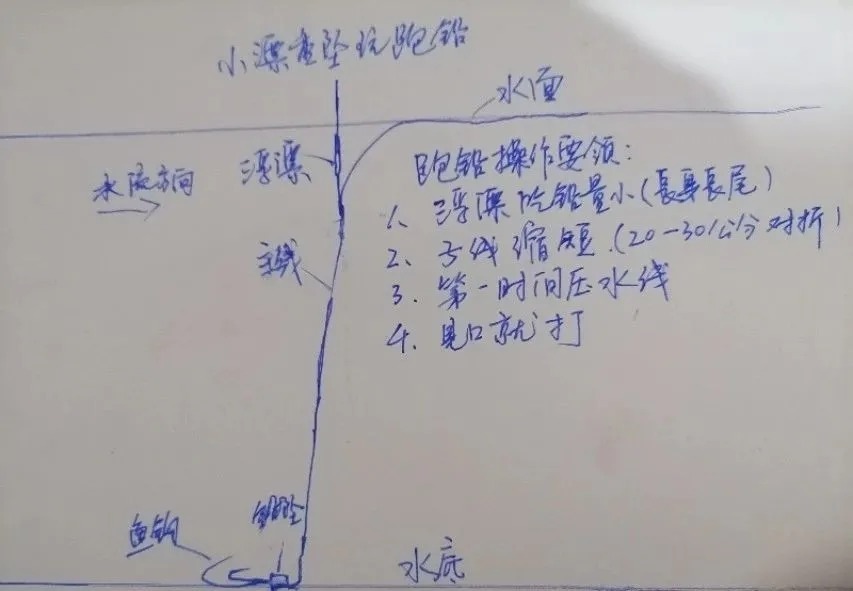 小漂重坠玩跑铅
水面
浮漂
水流方向
跑铅操作要领：
1、浮漂吃铅量小（長身長尾）
2、子线缩短.（20-30公分对折）
3、第一时间压水线
4、見口就打
主线
鱼钩
铅坠
水底